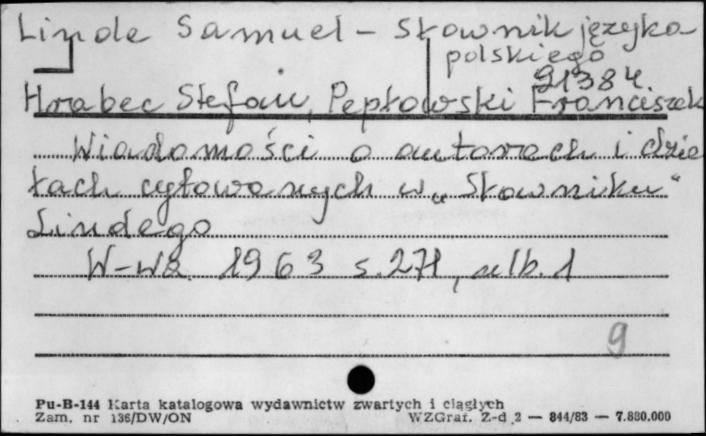 Linde Samuel - Słownik języka
polskiego
91384
Hrabec Stefan, Pepłowski Franciszek
Wiadomości o autorach i dzie
łach cytowanych w „Słowniku"
Lindego
W-wa 1963 s. 271, nlb. 1
9
Pu-B-144 Karta katalogowa wydawnictw zwartych i ciągłych
Zam. nr 136/DW/ON WZGraf. Z-d 2 — 844/83 — 7.880.000